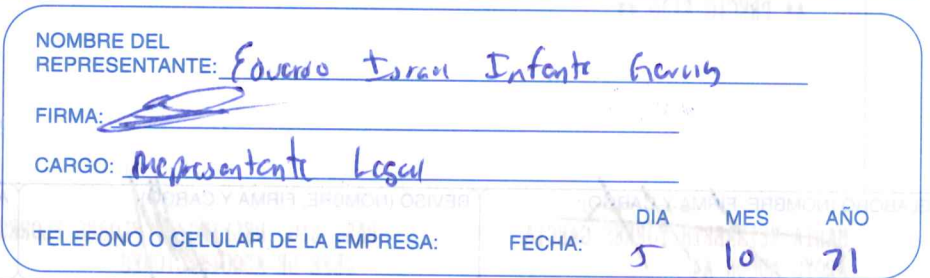 NOMBRE DEL
REPRESENTANTE: Eduardo Israel Infante Garcia
FIRMA:
CARGO: Representante Legal
DIA MES AÑO
TELEFONO O CELULAR DE LA EMPRESA: FECHA: 5 10 21